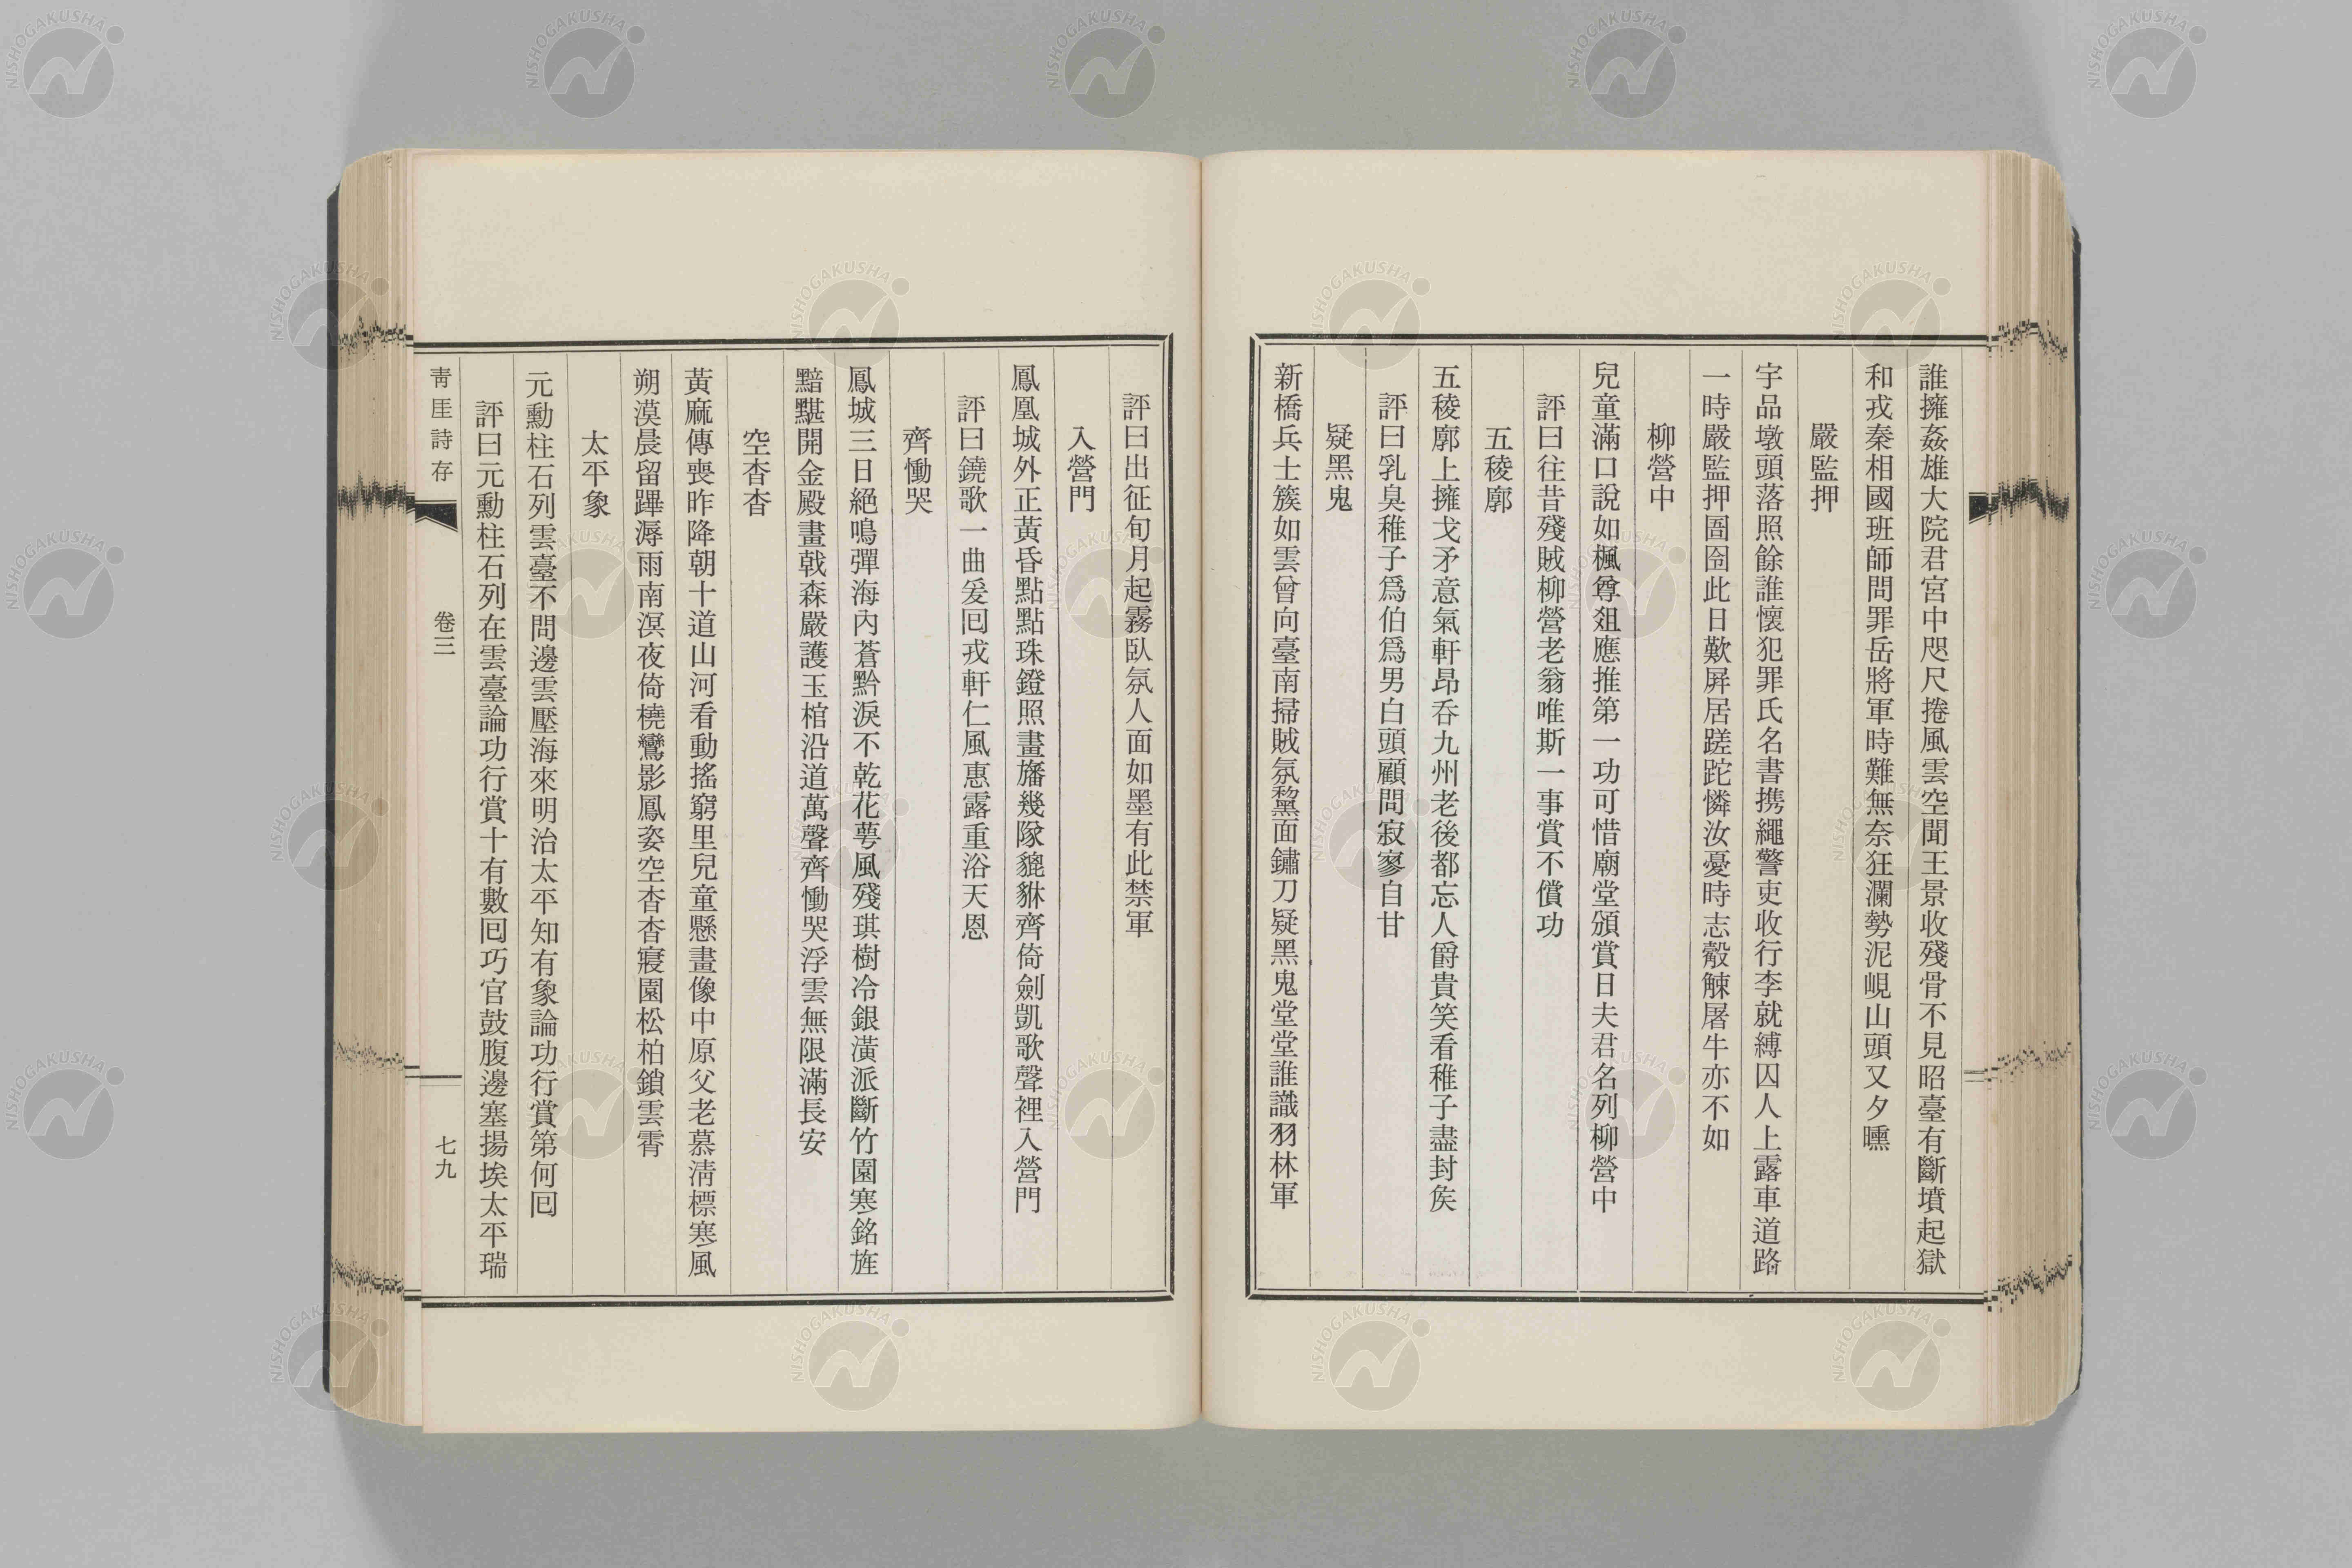 誰擁姦雄大院君宮中咫尺捲風雲空聞王景收殘骨不見昭臺有斷墳起獄
和戎秦相國班師問罪岳將軍時難無奈狂瀾勢泥峴山頭又夕曛
嚴監押
宇品墩頭落照餘誰懷犯罪氏名書携繩警吏收行李就縛囚人上露車道路
一時嚴監押圄圇此日歎屛居蹉跎憐汝憂時志觳觫屠牛亦不如
柳營中
兒童滿口說如楓尊爼應推第一功可惜廟堂頒賞日夫君名列柳營中
評曰往昔殘賊柳營老翁唯斯一事賞不償功
五稜廓
五稜廓上擁戈矛意氣軒昂呑九州老後都忘人爵貴笑看稚子盡封矦
評曰乳臭稚子爲伯爲男白頭顧問寂寥自甘
疑黑鬼
新橋兵士簇如雲曾向臺南掃賊氛黧面鏽刀疑黑鬼堂堂誰識羽林軍
評曰出征旬月起霧臥氛人面如墨有此禁軍
入營門
鳳凰城外正黃昏點點珠鐙照畫旛幾隊貔貅齊倚劍凱歌聲裡入營門
評曰鐃歌一曲爰囘戎軒仁風惠露重浴天恩
齊慟哭
鳳城三日絕鳴彈海內蒼黔淚不乾花萼風殘琪樹冷銀潢派斷竹園寒銘旌
黯黮開金殿畫戟森嚴護玉棺沿道萬聲齊慟哭浮雲無限滿長安
空杳杳
黃麻傳喪昨降朝十道山河看動搖窮里兒童懸畫像中原父老慕淸標寒風
朔漠晨留蹕溽雨南溟夜倚橈鸞影鳳姿空杳杳寢園松柏鎖雲霄
太平象
元勳柱石列雲臺不問邊雲壓海來明治太平知有象論功行賞第何囘
評曰元勳柱石列在雲臺論功行賞十有數囘巧官鼓腹邊塞揚埃太平瑞
靑厓詩存
卷三
七九
NISHOGAKUSHA